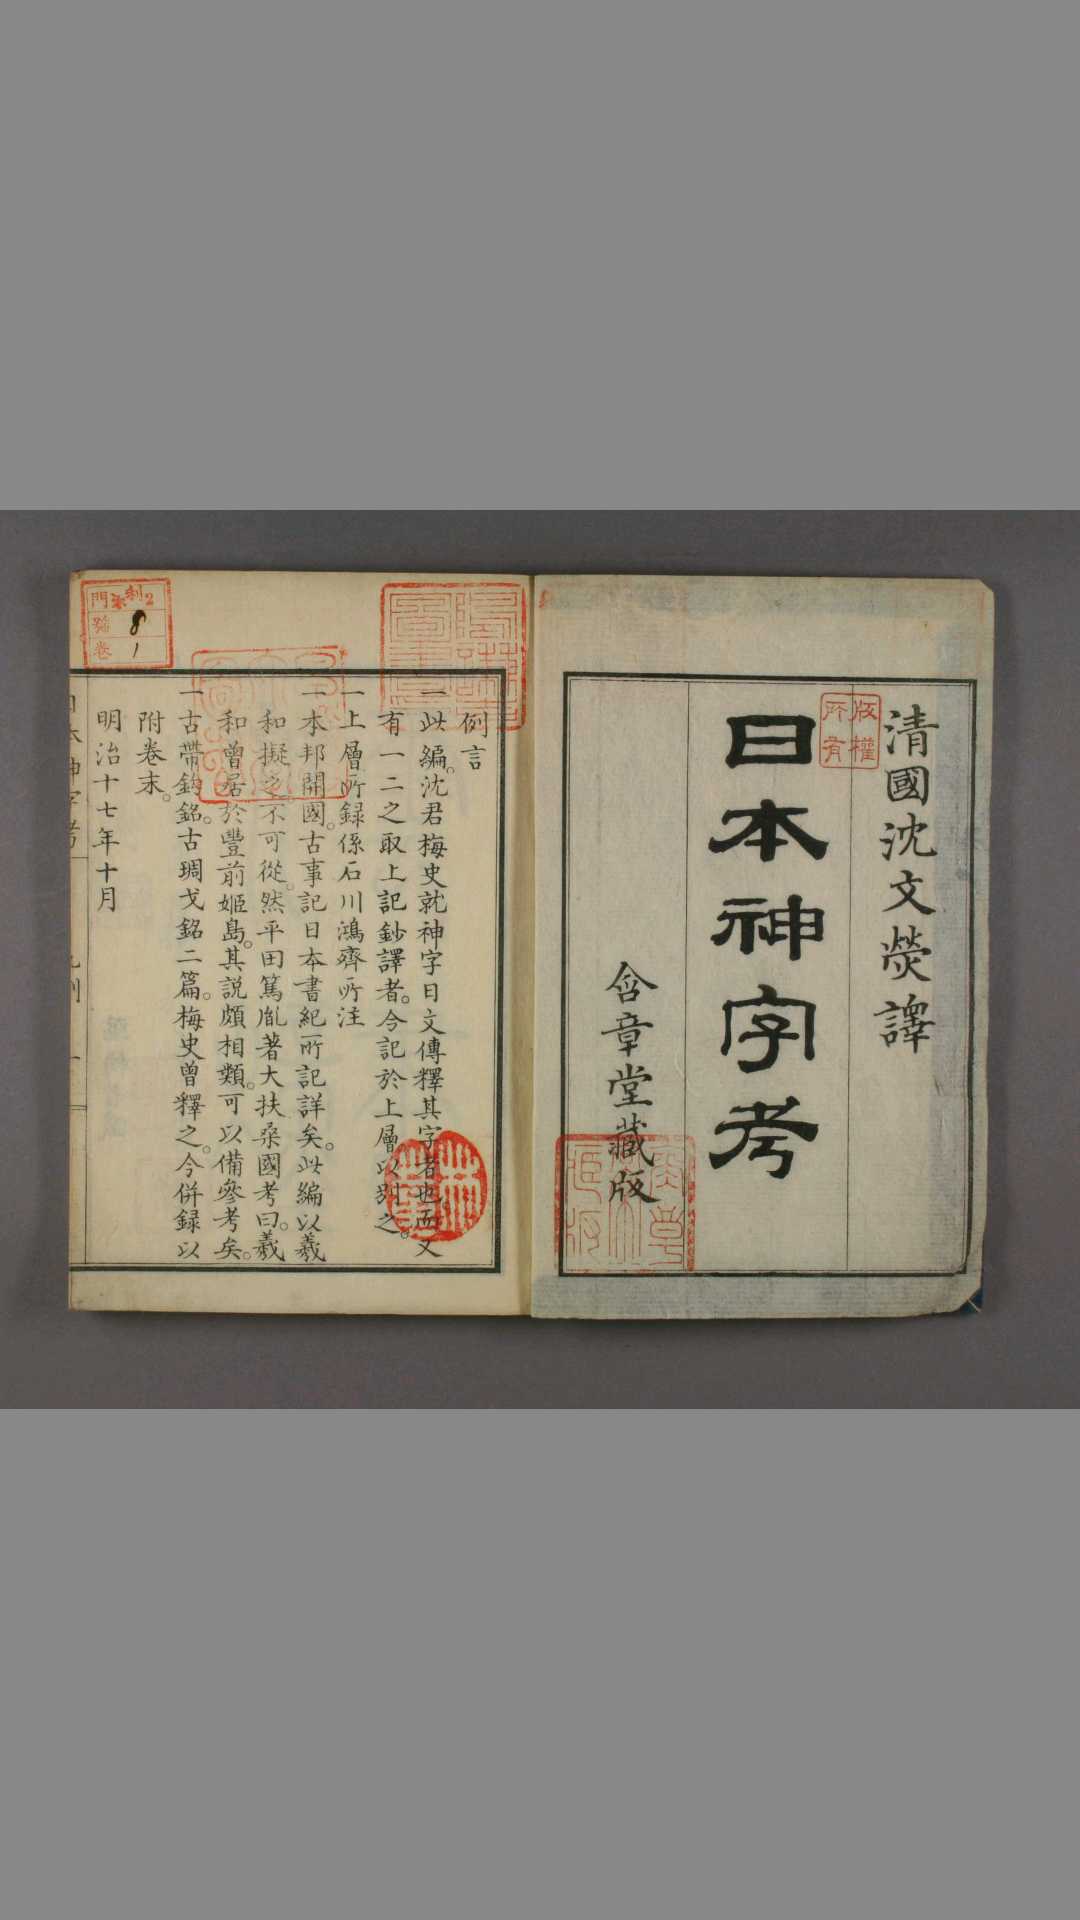 清國沈文熒譯
版權
所有
日本神字考
含章堂藏版
例言
一此編。沈君梅史就神字日文傳釋其字者也。而又
有一二之取上記鈔譯者。今記於上層以別之。
一上層所録係石川鴻齊所注
一本邦開國。古事記日本書紀所記詳矣。此編以羲
和擬之。不可從。然平田篤胤著大扶桑國考曰。羲
和曾居於豐前姬島。其説頗相類。可以備參考矣。
一古帶鉤銘。古琱戈銘二篇。梅史曾釋之。今併録以
附卷末。
明治十七年十月
門
號 8
卷 1